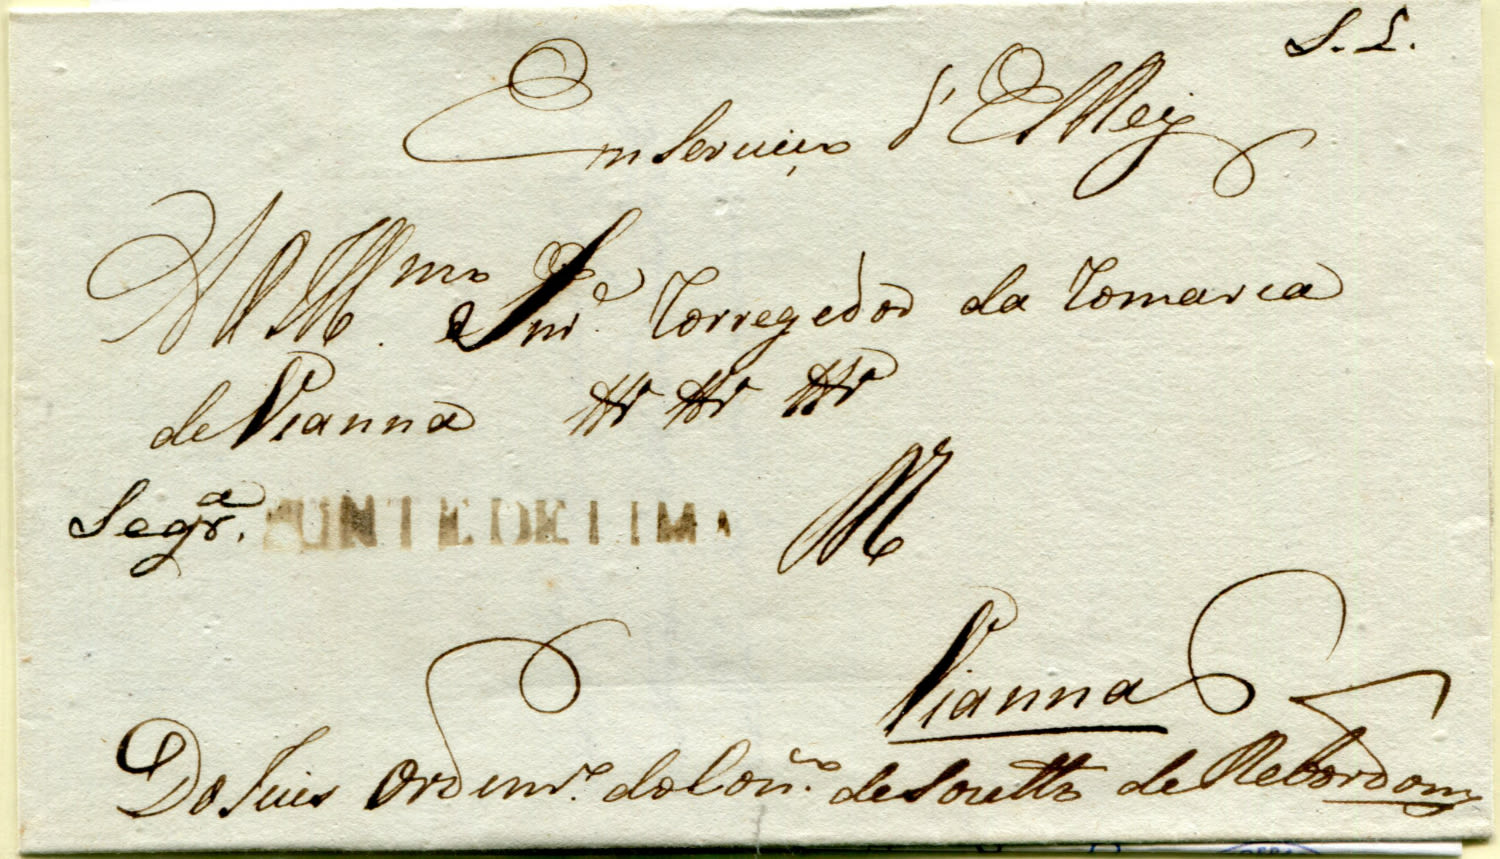 S. L.
Em Serviço d' ElRey
Ao Illmo Snr. Corregedor da Comarca
de Vianna
Segra. PONTE DE LIMA
Vianna
Do Juis Ordenro. do Coñ.co de Soutto de Rebordoins